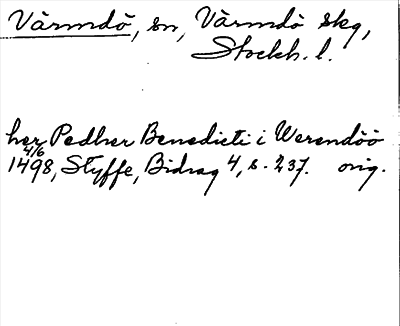 Värmdö, sn, Värmdö skg,
Stockh. l.
her Pedher Benedicti i Werendöö
4/6
1498, Styffe, Bidrag 4, s. 237. orig.